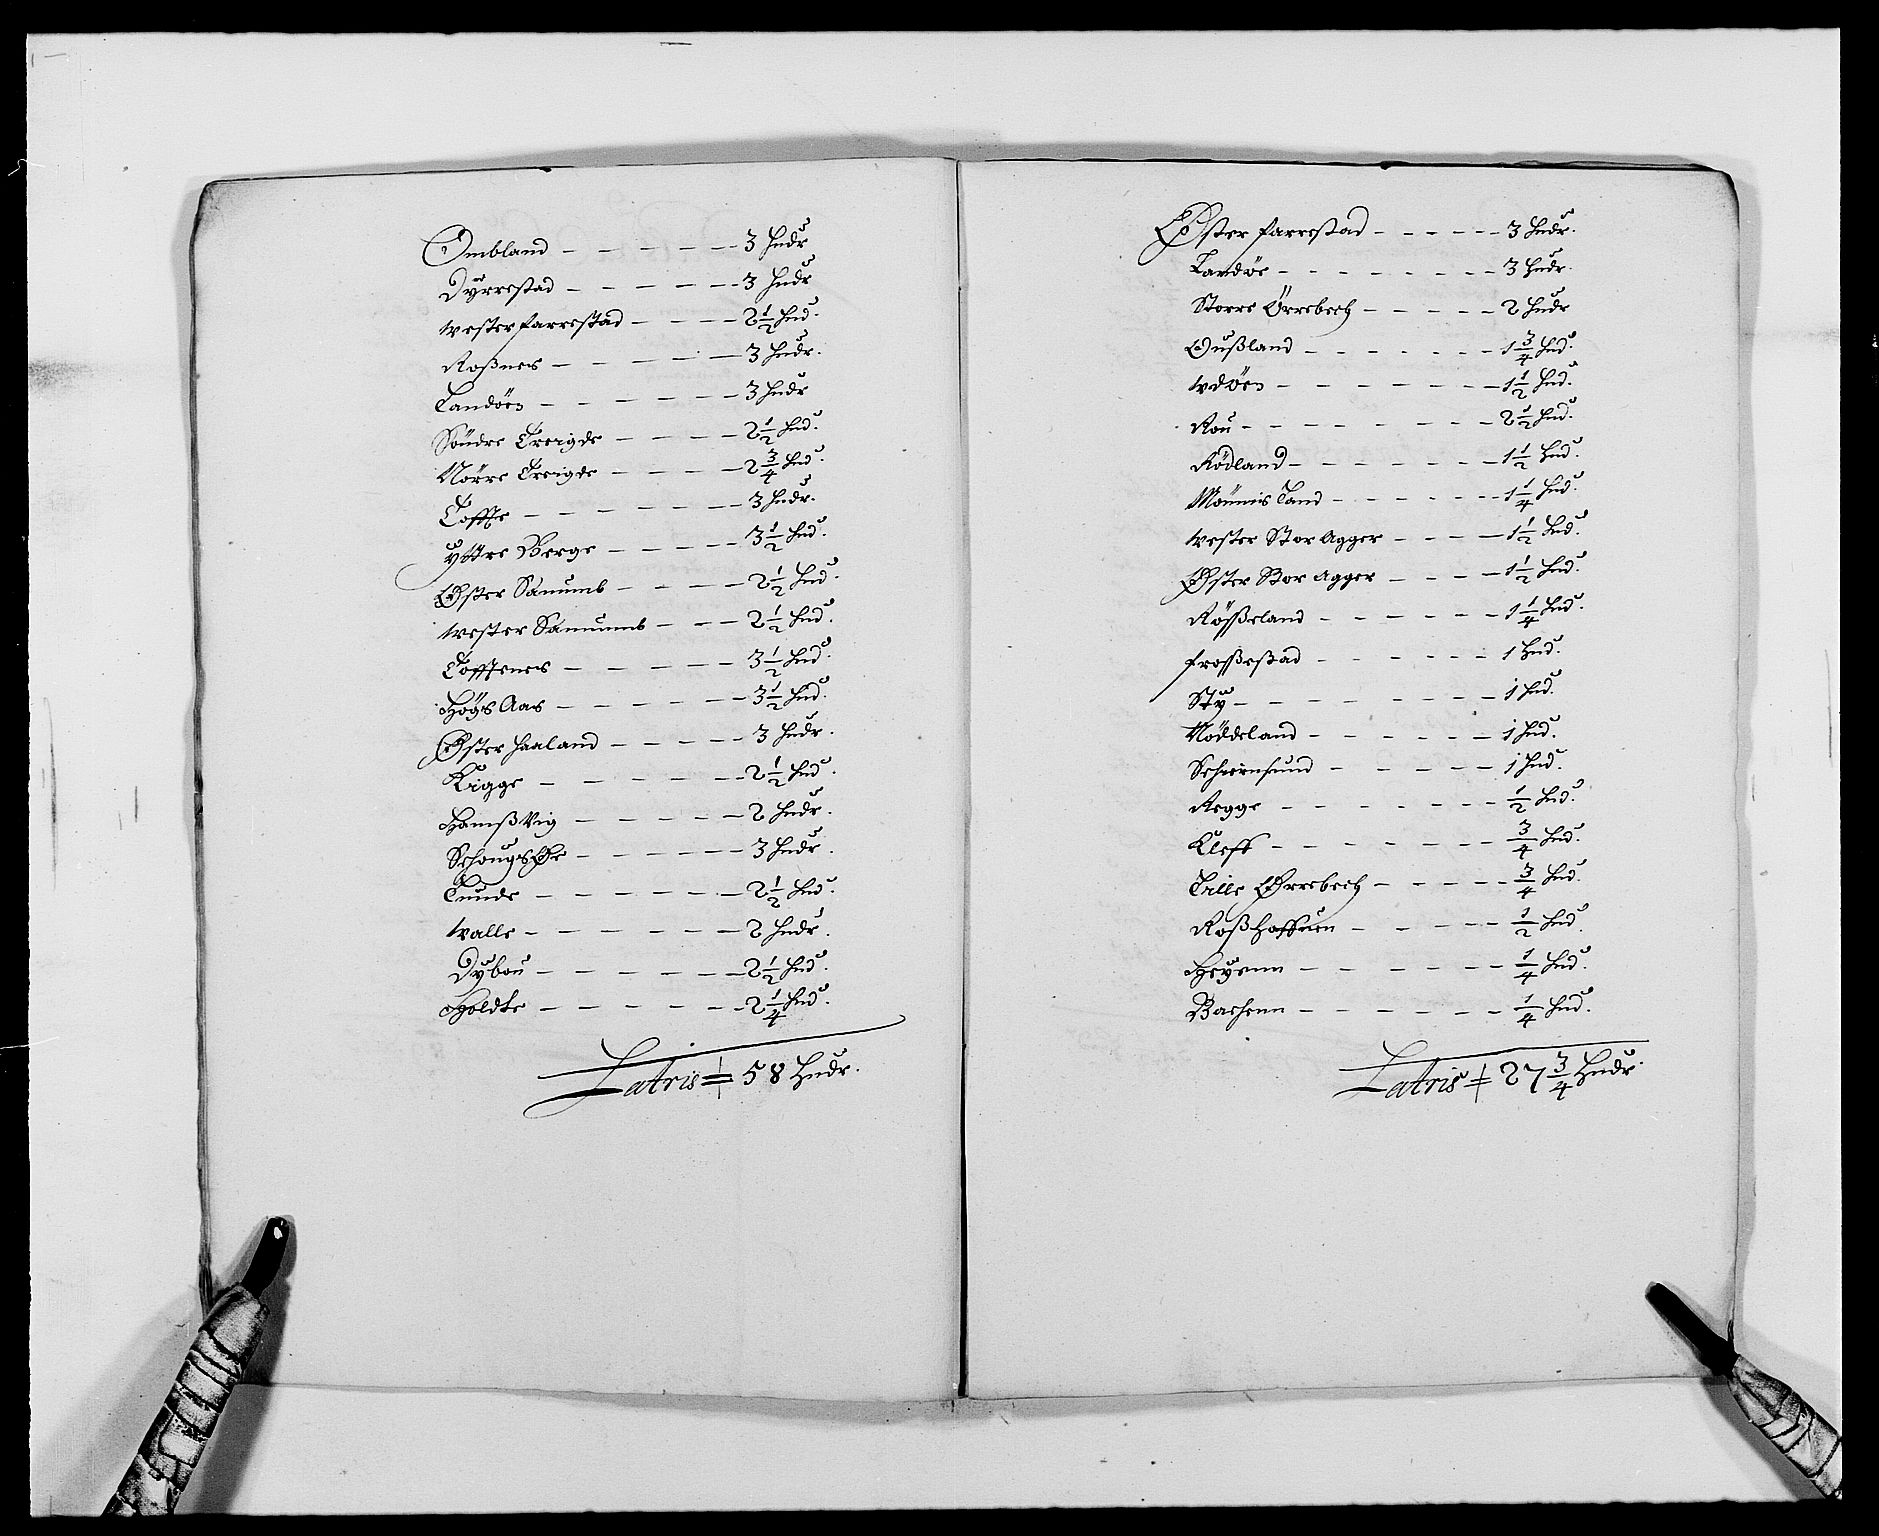 Ombland - - - - - 3 Hudr
Dÿrrestad - - - - - 3 Hudr
Wester farrestad - - - - 2 1/2 Hud.
Roßnes - - - - - 3 Hudr.
Landöen - - - - - - 3 Hudr
Söndre Treigde - - - - 2 1/2 Hud.
Nörre Treigde - - - - 2 3/4 Hud.
Toffte - - - - - - 3 Hudr.
Yttre Berge - - - - - 3 1/2 Hud.
Øster Sanumb - - - - 2 1/2 Hud.
Wester Sanumb - - - 2 1/2 Hud.
Tofftenes - - - - - 3 1/2 Hud.
Högs Aas - - - - - - 3 1/2 Hud.
Øster Haaland - - - - - 3 Hudr.
Rigge - - - - - - 2 1/2 Hud.
Hamß Vig - - - - - 2 Hudr.
Schougsøe - - - - - - 3 Hudr.
Tunde - - - - - - 2 1/2 Hud.
Walle - - - - - - 2 Hudr.
Dybou - - - - - - 2 1/2 Hud.
Holdte - - - - - - 2 1/4 Hud.
Latris = 58 Hudr.
Øster farrestad - - - - - 3 Hudr.
Landøe - - - - - - - 3 Hudr.
Storre Örrebech - - - - - 2 Hudr
Oußland - - - - - - 1 3/4 Hud.
Udöen - - - - - - 1 1/2 Hud.
Rou - - - - - - - 2 1/2 Hud.
Rödland - - - - - - 1 1/2 Hud.
Mönnisland - - - - - - 1 1/4 Hud.
Wester Stor Agger - - - - 1 1/2 Hud.
Øster Stor Agger - - - - 1 1/2 Hud.
Rößeland - - - - - - 1 1/4 Hud.
froßestad - - - - - - 1 Hud.
Stÿ - - - - - - - 1 Hud.
Nöddeland - - - - - - 1 Hud.
Schiernsund - - - - - 1 Hud.
Regge - - - - - - 1/2 Hud.
Kleff - - - - - - - 3/4 Hud.
Lille Ørrebech - - - - - 3/4 Hud.
Roßhaffuen - - - - - 1/2 Hud.
Heyenn - - - - - - 1/4 Hud.
Bachenn - - - - - - 1/4 Hud.
Latris = 27 3/4 Hudr.